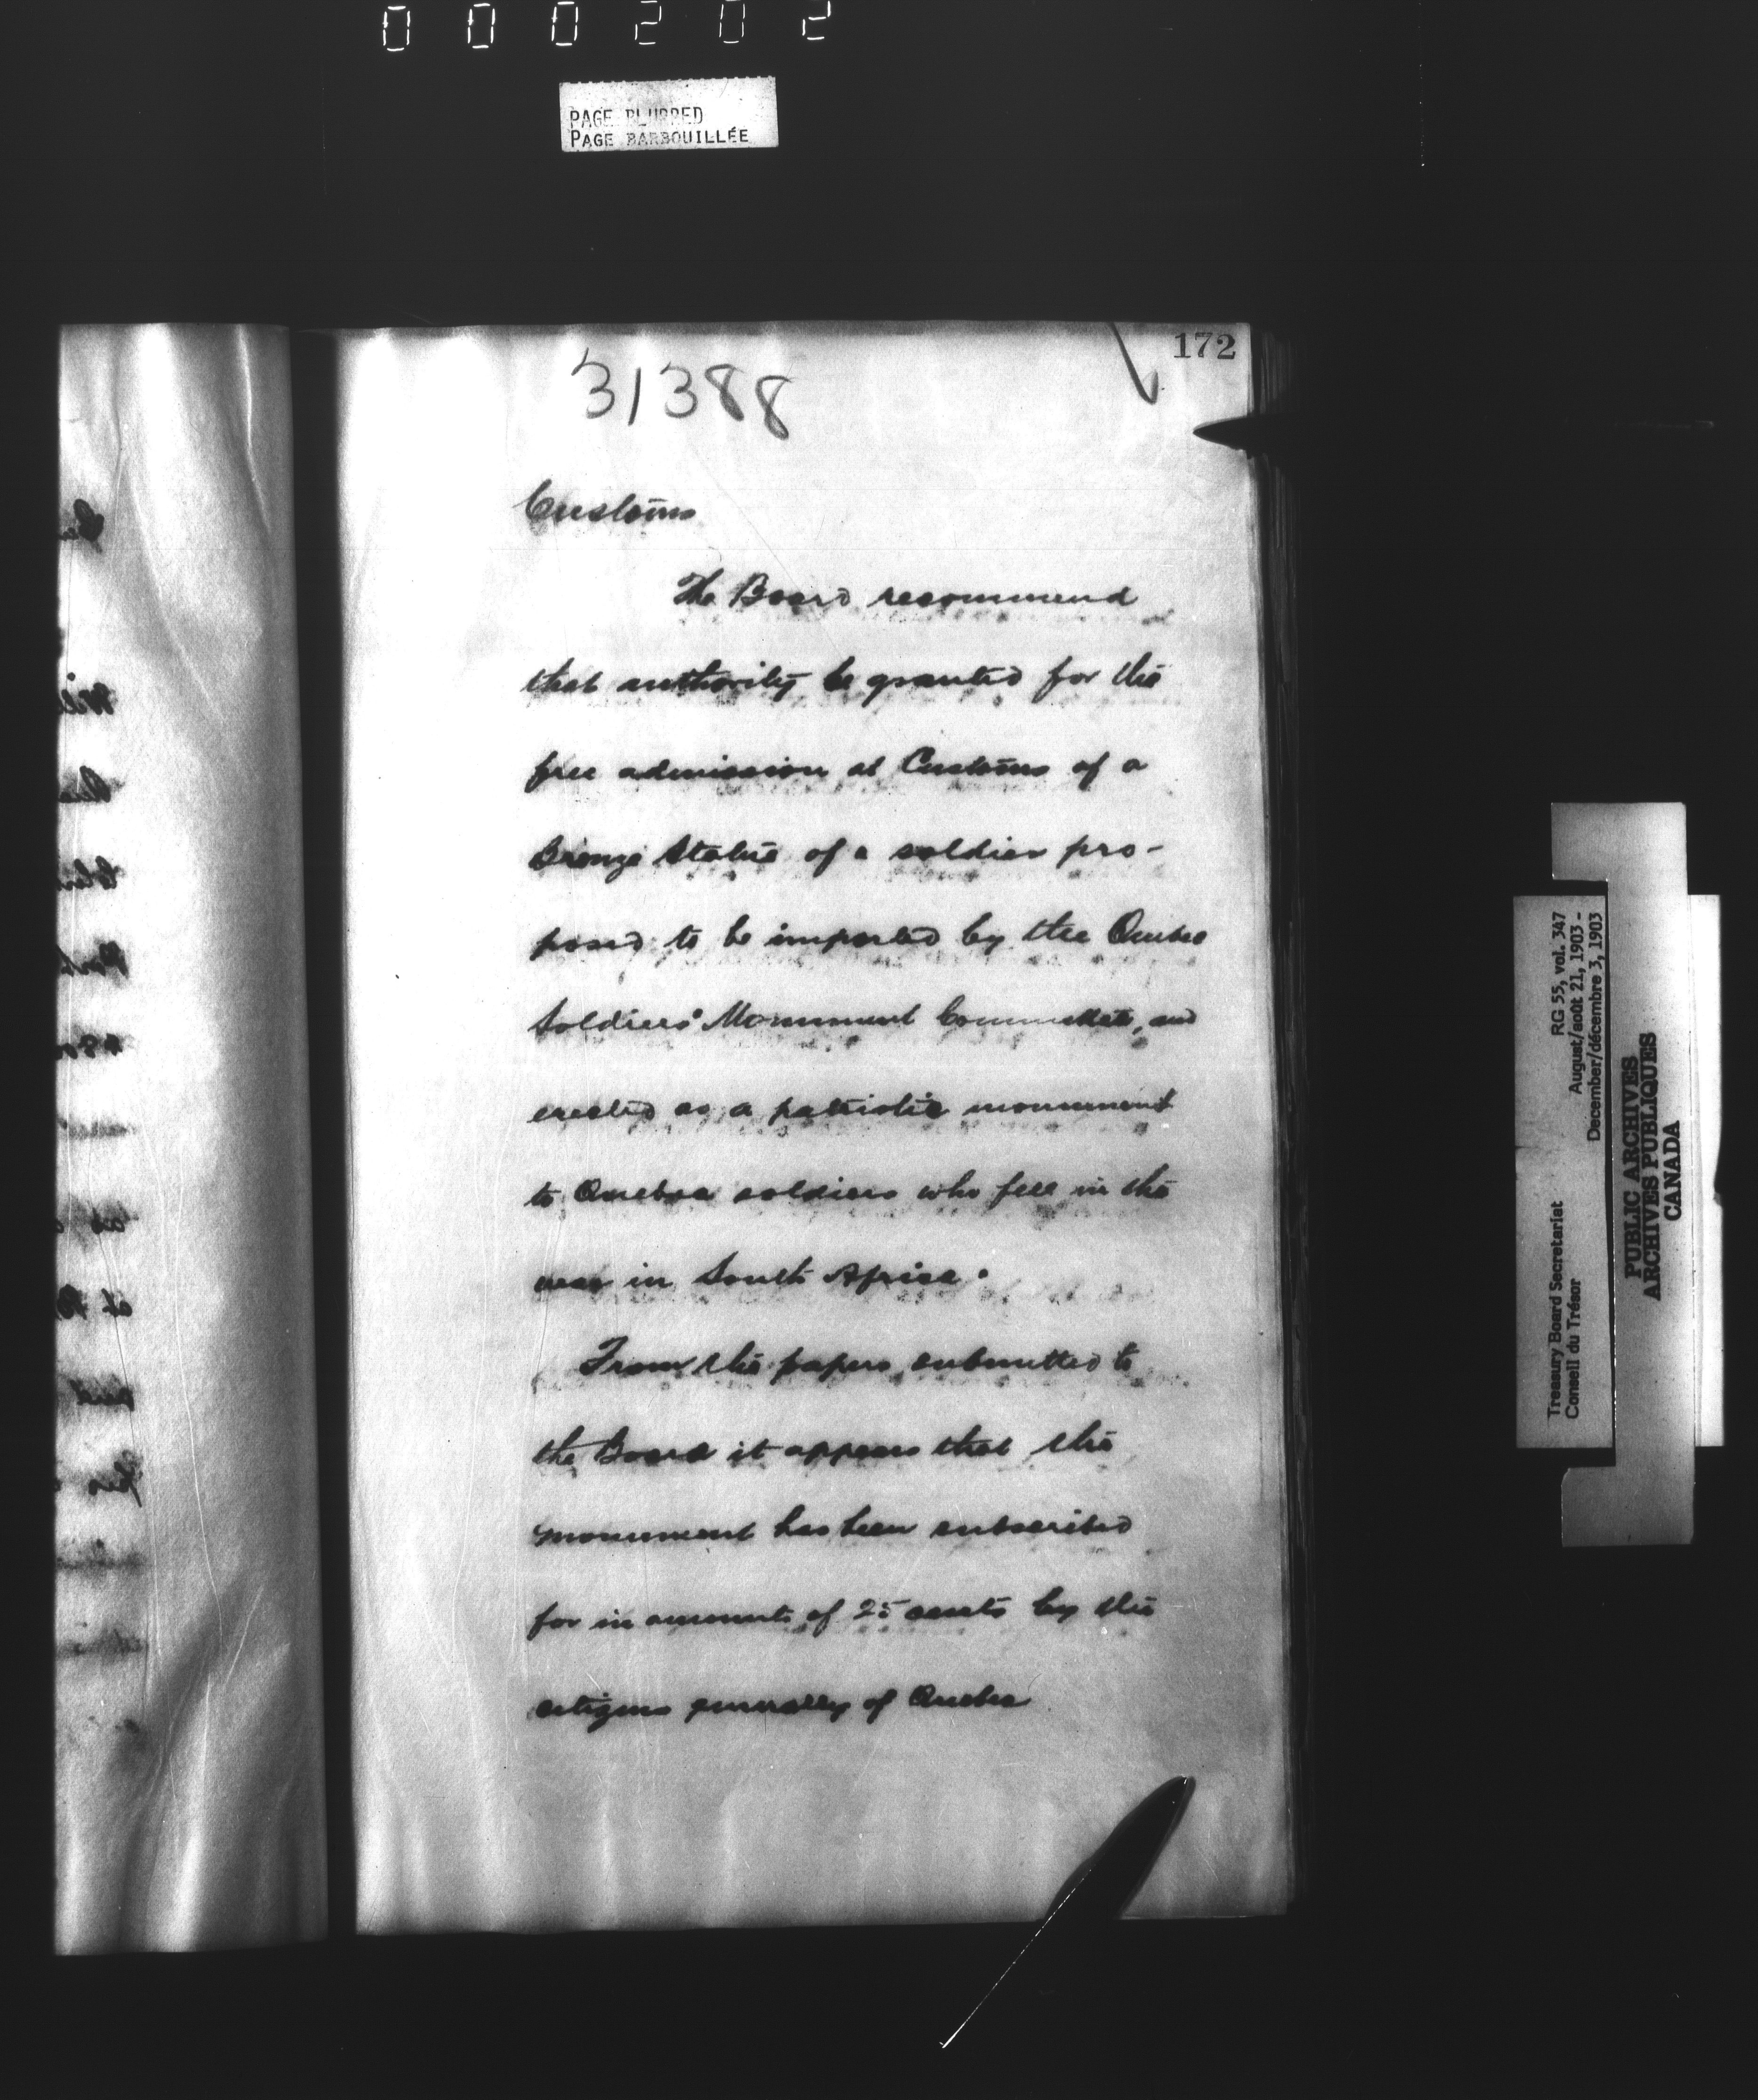 000202
PAGE BLURRED
PAGE BARBOUILLÉE
172
31388
Customs
The Board recommend
that authority be granted for the
free admission at Customs of a
Bronze Statue of a soldier pro-
posed to be imported by the Quebec
Soldiers' Monument Committee, and
erected as a patriotic monument
to Quebec soldiers who fell in the
war in South Africa.
From the papers submitted to
the Board it appears that the
monument has been subscribed
for in amounts of 25 cents by the
citizens generally of Quebec
Treasury Board Secretariat RG 55, vol. 347
Conseil du Trésor August/août 21, 1903 -
December/décembre 3, 1903
PUBLIC ARCHIVES
ARCHIVES PUBLIQUES
CANADA